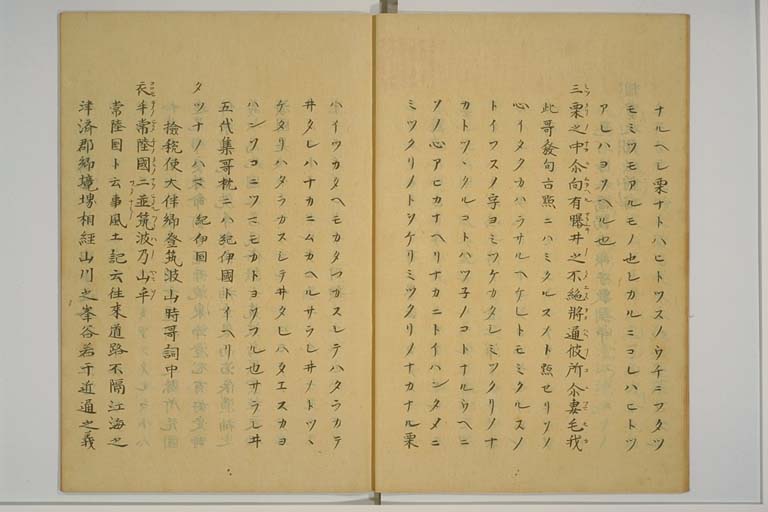 ナルヘシ栗ナトハヒトツスノウチニフタツ
ミツモアルモノ也シカルニコレハヒトツ
アレハヨソヘル也
三栗之中尒向有曝井之不絶將通彼所尒妻毛我
此哥發句古點ニハミクルスノト點セリソノ
心イタクカハラサルヘケレトモミクルスノ
トイフスノ字ヨミツケカタシミツクリノナ
カトツヽクルコトハツ子ノコトナルウヘニ
ソノ心アヒカナヘリナカニトイハンタメニ
ミツクリノトヲケリミツクリノナカナル栗
ハイツカタヘモカタヨラスシテハタラカテ
井タレハナカニムカヘルサラシ井ノトツヽ
ケタリハタラカスシテ井タレハタエスカヨ
ハンソコニツマモカトヨソフル也サラシ井
五代集哥枕ニハ紀伊國トイヘリ
タツナノハマ 紀伊國
檢稅使大伴卿登筑波山時哥詞中
衣手常陸國二並筑波乃山乎
常陸國ト云事風土記云往來道路不隔江海之
津濟郡鄕境堺相經山川之峯谷若干近通之義